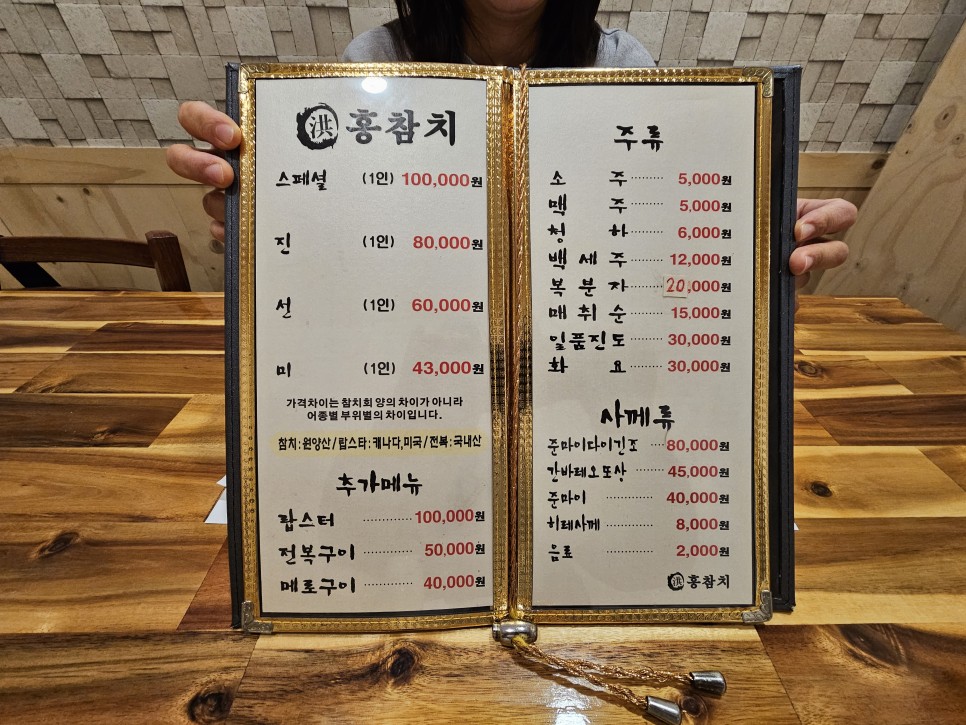 洪 홍참치
스페셜 (1인) 100,000원
진 (1인) 80,000원
선 (1인) 60,000원
미 (1인) 43,000원
가격차이는 참치회 양의 차이가 아니라
어종별 부위별의 차이입니다.
참치 : 원양산 / 랍스타 : 캐나다,미국 / 전복 : 국내산
추가메뉴
랍스터 ············ 100,000원
전복구이 ············ 50,000원
메로구이 ············ 40,000원
주류
소 주 ········ 5,000원
맥 주 ········ 5,000원
청 하 ········ 6,000원
백 세 주 ········ 12,000원
복 분 자 ········ 20,000원
매 취 순 ········ 15,000원
일품진도 ········ 30,000원
화 요 ········ 30,000원
사께류
준마이다이긴조 ······ 80,000원
간바레오또상 ······ 45,000원
준마이 ············ 40,000원
히레사께 ············ 8,000원
음료 ············ 2,000원
洪 홍참치